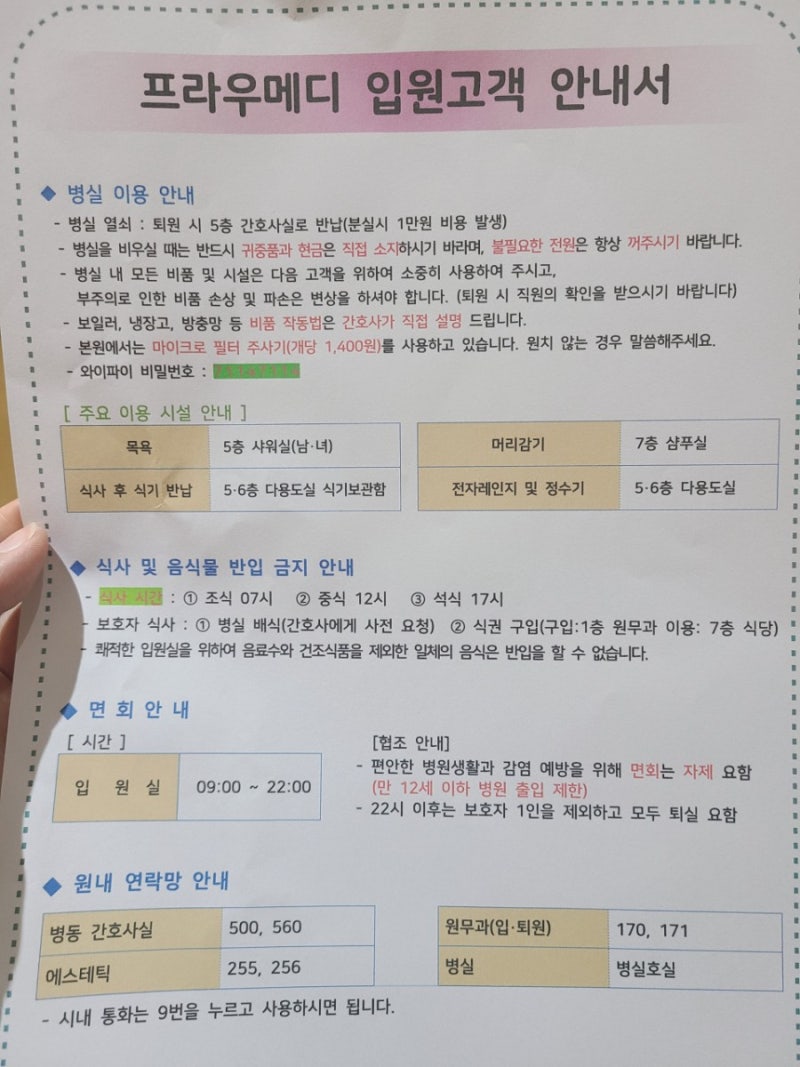 프라우메디 입원고객 안내서
◆ 병실 이용 안내
- 병실 열쇠 : 퇴원 시 5층 간호사실로 반납(분실시 1만원 비용 발생)
- 병실을 비우실 때는 반드시 귀중품과 현금은 직접 소지하시기 바라며, 불필요한 전원은 항상 꺼주시기 바랍니다.
- 병실 내 모든 비품 및 시설은 다음 고객을 위하여 소중히 사용하여 주시고,
부주의로 인한 비품 손상 및 파손은 변상을 하셔야 합니다. (퇴원 시 직원의 확인을 받으시기 바랍니다)
- 보일러, 냉장고, 방충망 등 비품 작동법은 간호사가 직접 설명 드립니다.
- 본원에서는 마이크로 필터 주사기(개당 1,400원)를 사용하고 있습니다. 원치 않는 경우 말씀해주세요.
- 와이파이 비밀번호 :
[ 주요 이용 시설 안내 ]
목욕 5층 샤워실(남·녀) 머리감기 7층 샴푸실
식사 후 식기 반납 5·6층 다용도실 식기보관함 전자레인지 및 정수기 5·6층 다용도실
◆ 식사 및 음식물 반입 금지 안내
- 식사 시간 : ① 조식 07시 ② 중식 12시 ③ 석식 17시
- 보호자 식사 : ① 병실 배식(간호사에게 사전 요청) ② 식권 구입(구입:1층 원무과 이용: 7층 식당)
- 쾌적한 입원실을 위하여 음료수와 건조식품을 제외한 일체의 음식은 반입을 할 수 없습니다.
◆ 면 회 안 내
[ 시간 ] [협조 안내]
입 원 실 09:00 ~ 22:00
- 편안한 병원생활과 감염 예방을 위해 면회는 자제 요함
(만 12세 이하 병원 출입 제한)
- 22시 이후는 보호자 1인을 제외하고 모두 퇴실 요함
◆ 원내 연락망 안내
병동 간호사실 500, 560 원무과(입·퇴원) 170, 171
에스테틱 255, 256 병실 병실호실
- 시내 통화는 9번을 누르고 사용하시면 됩니다.